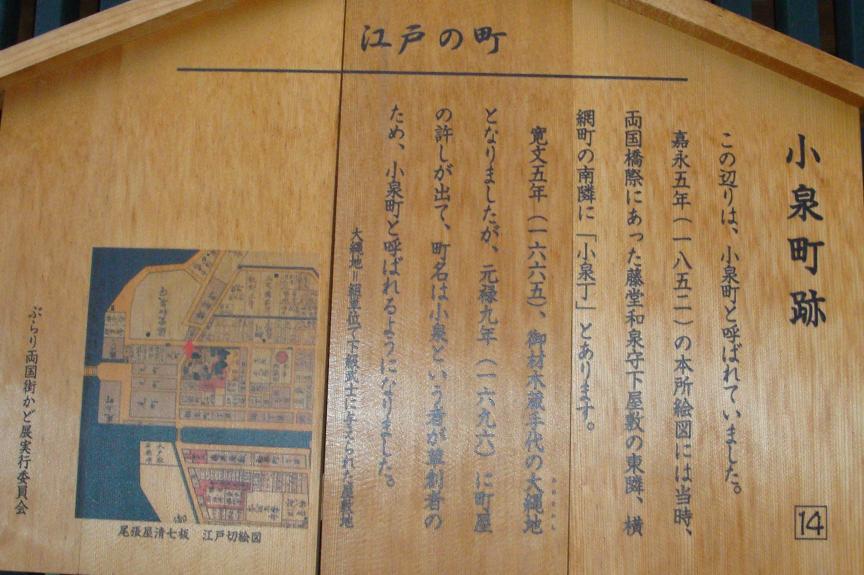 江戸の町
小泉町跡
この辺りは、小泉町と呼ばれていました。
嘉永五年（一八五二）の本所絵図には当時、
両国橋際にあった藤堂和泉守下屋敷の東隣、横
網町の南隣に「小泉丁」とあります。
寛文五年（一六六五）、御材木蔵手代の大縄地
となりましたが、元禄九年（一六九六）に町屋
の許しが出て、町名は小泉という者が草創者の
ため、小泉町と呼ばれるようになりました。
大縄地＝組単位で下級武士に与えられた屋敷地
尾張屋清七板 江戸切絵図
ぶらり両国街かど展実行委員会
14